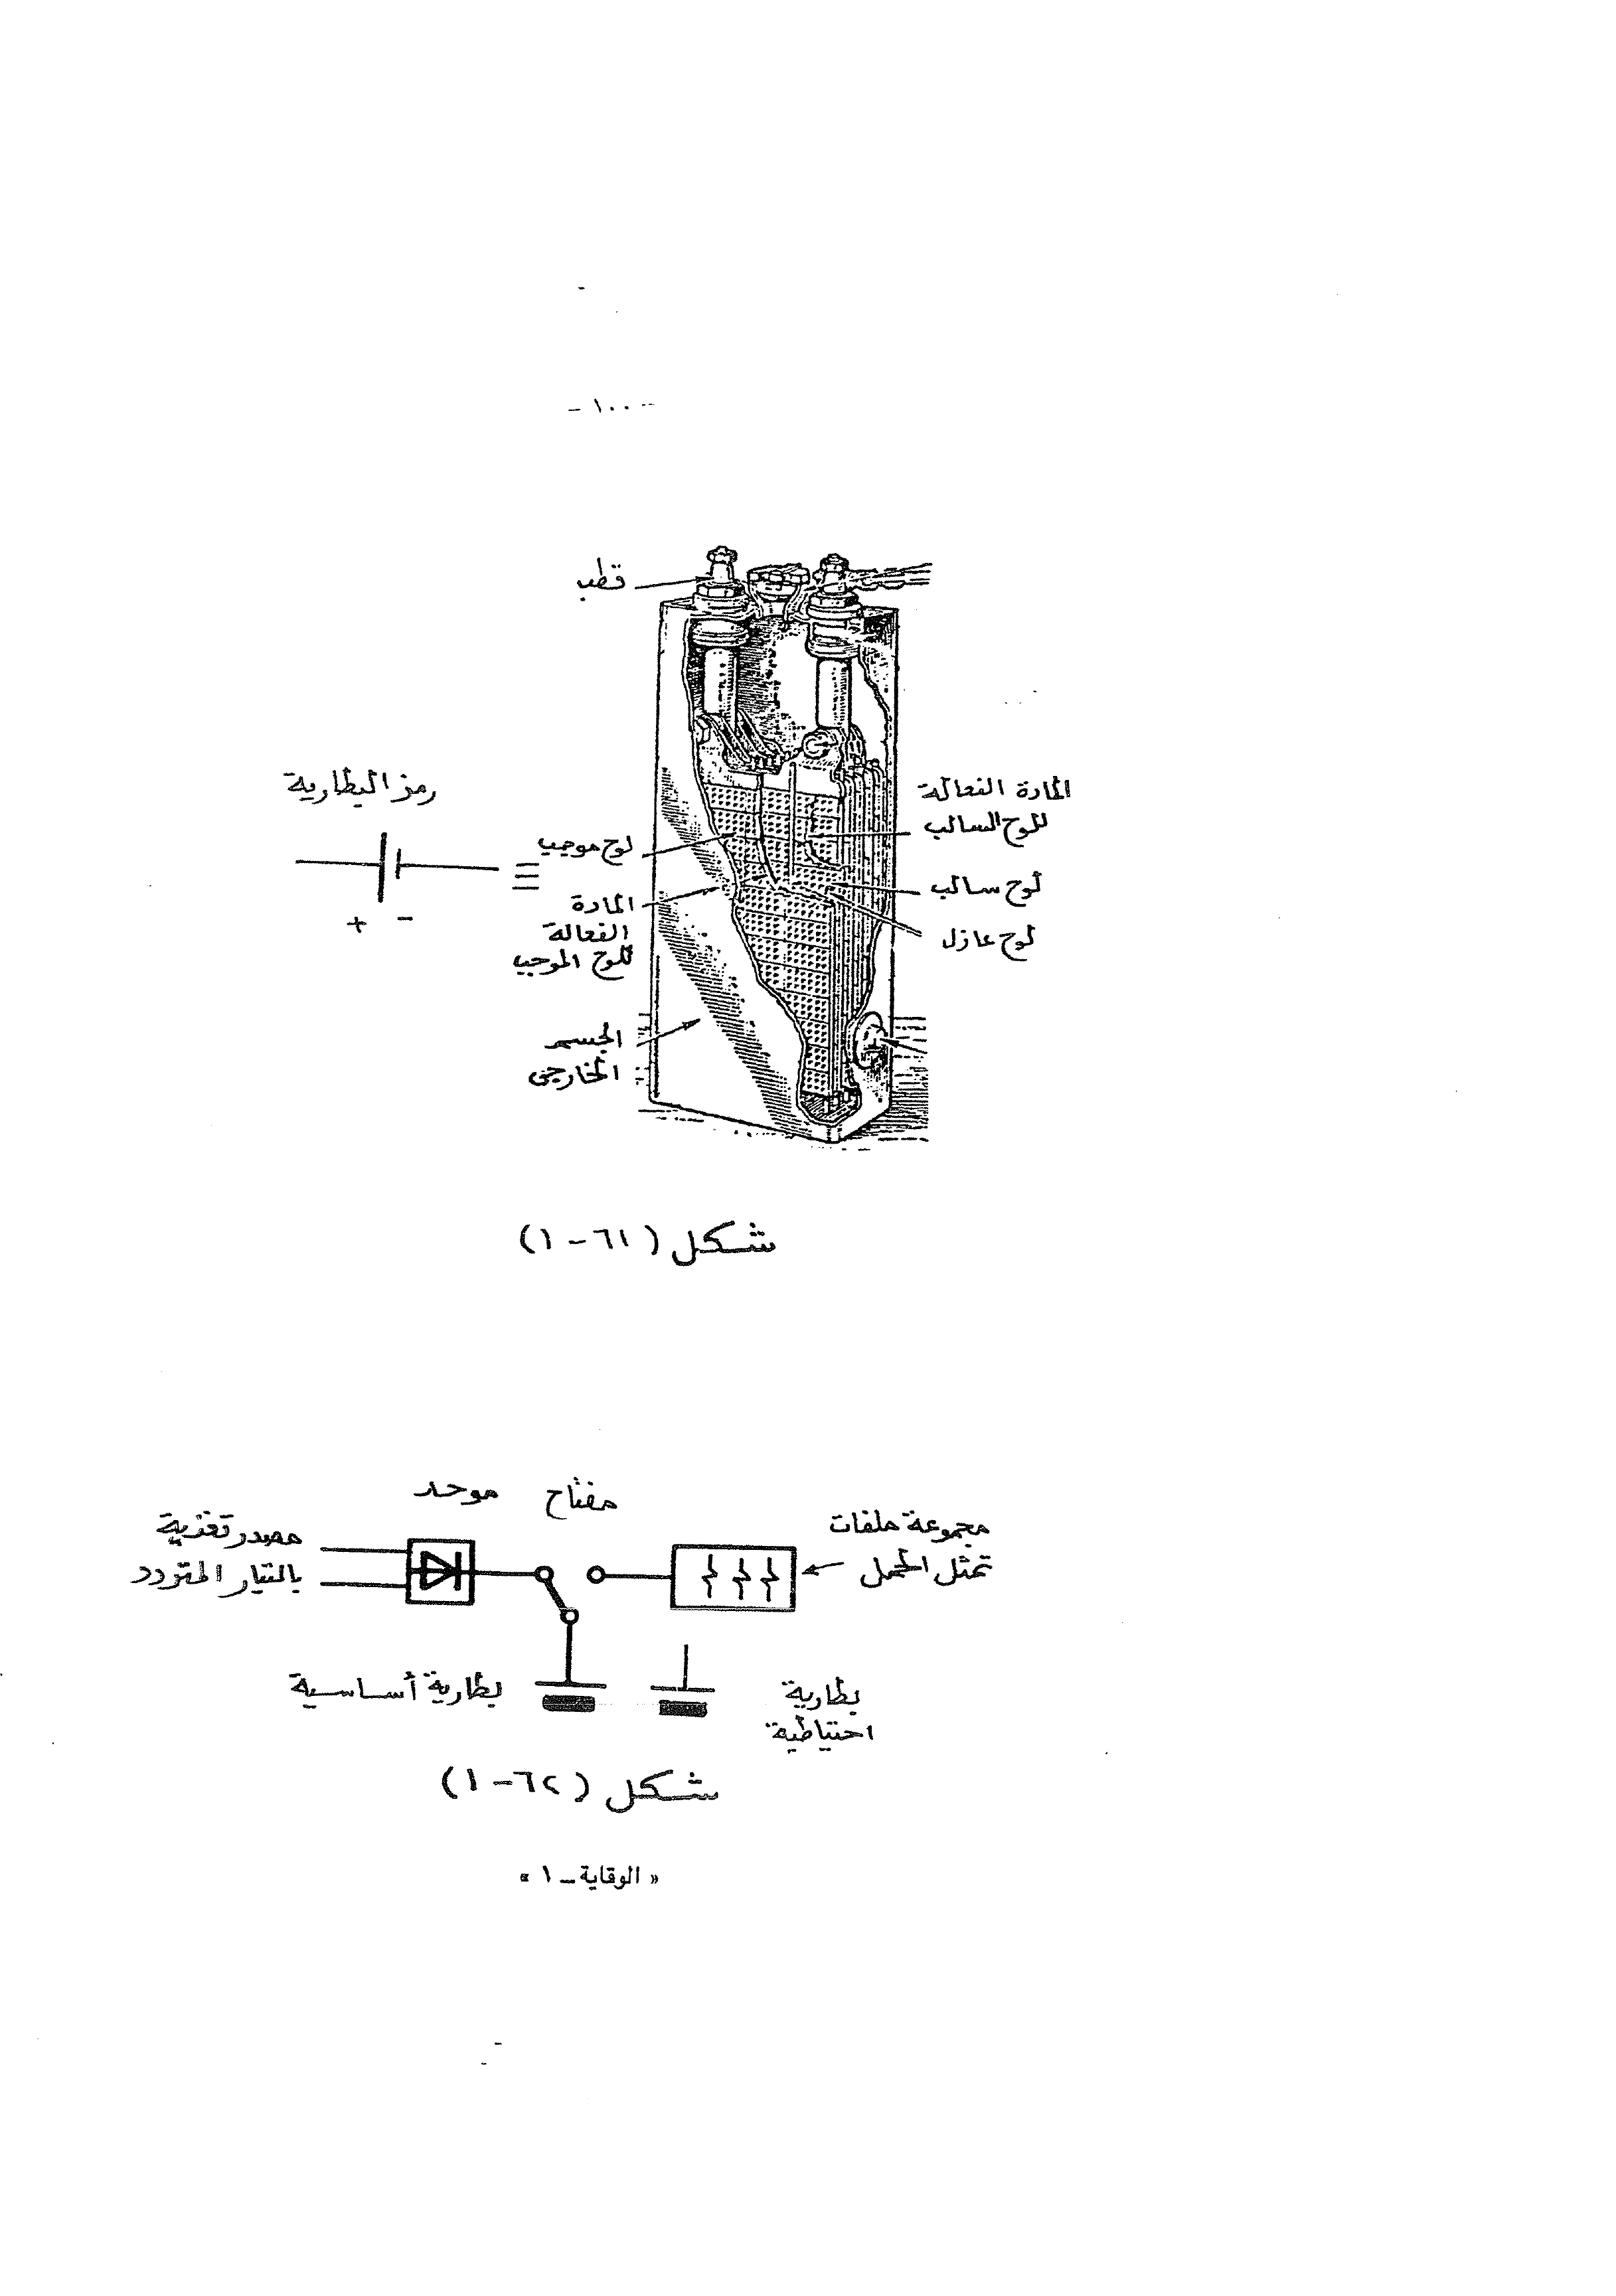 - ١٠٠ -
قطب
رمز البطارية
+ -
لوح موجب
المادة
الفعالة
للوح الموجب
الجسم
الخارجي
المادة الفعالة
للوح السالب
لوح سالب
لوح عازل
شكل (٦١-١)
موحد
مفتاح
مصدر تغذية
بالتيار المتردد
مجموعة ملفات
تمثل الحمل
بطارية أساسية
بطارية
احتياطية
شكل (٦٢-١)
« الوقاية - ١ »